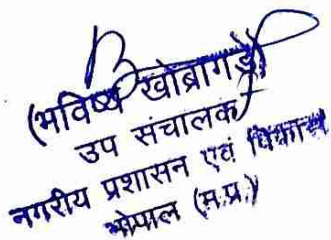 (भविष्य खोब्रागड़े)
उप संचालक
नगरीय प्रशासन एवं विकास
भोपाल (म.प्र.)